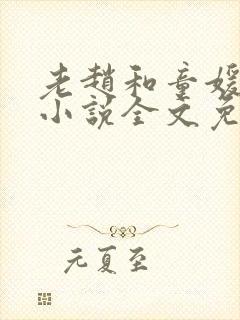 老赵和童媛
小说全文免
元夏至